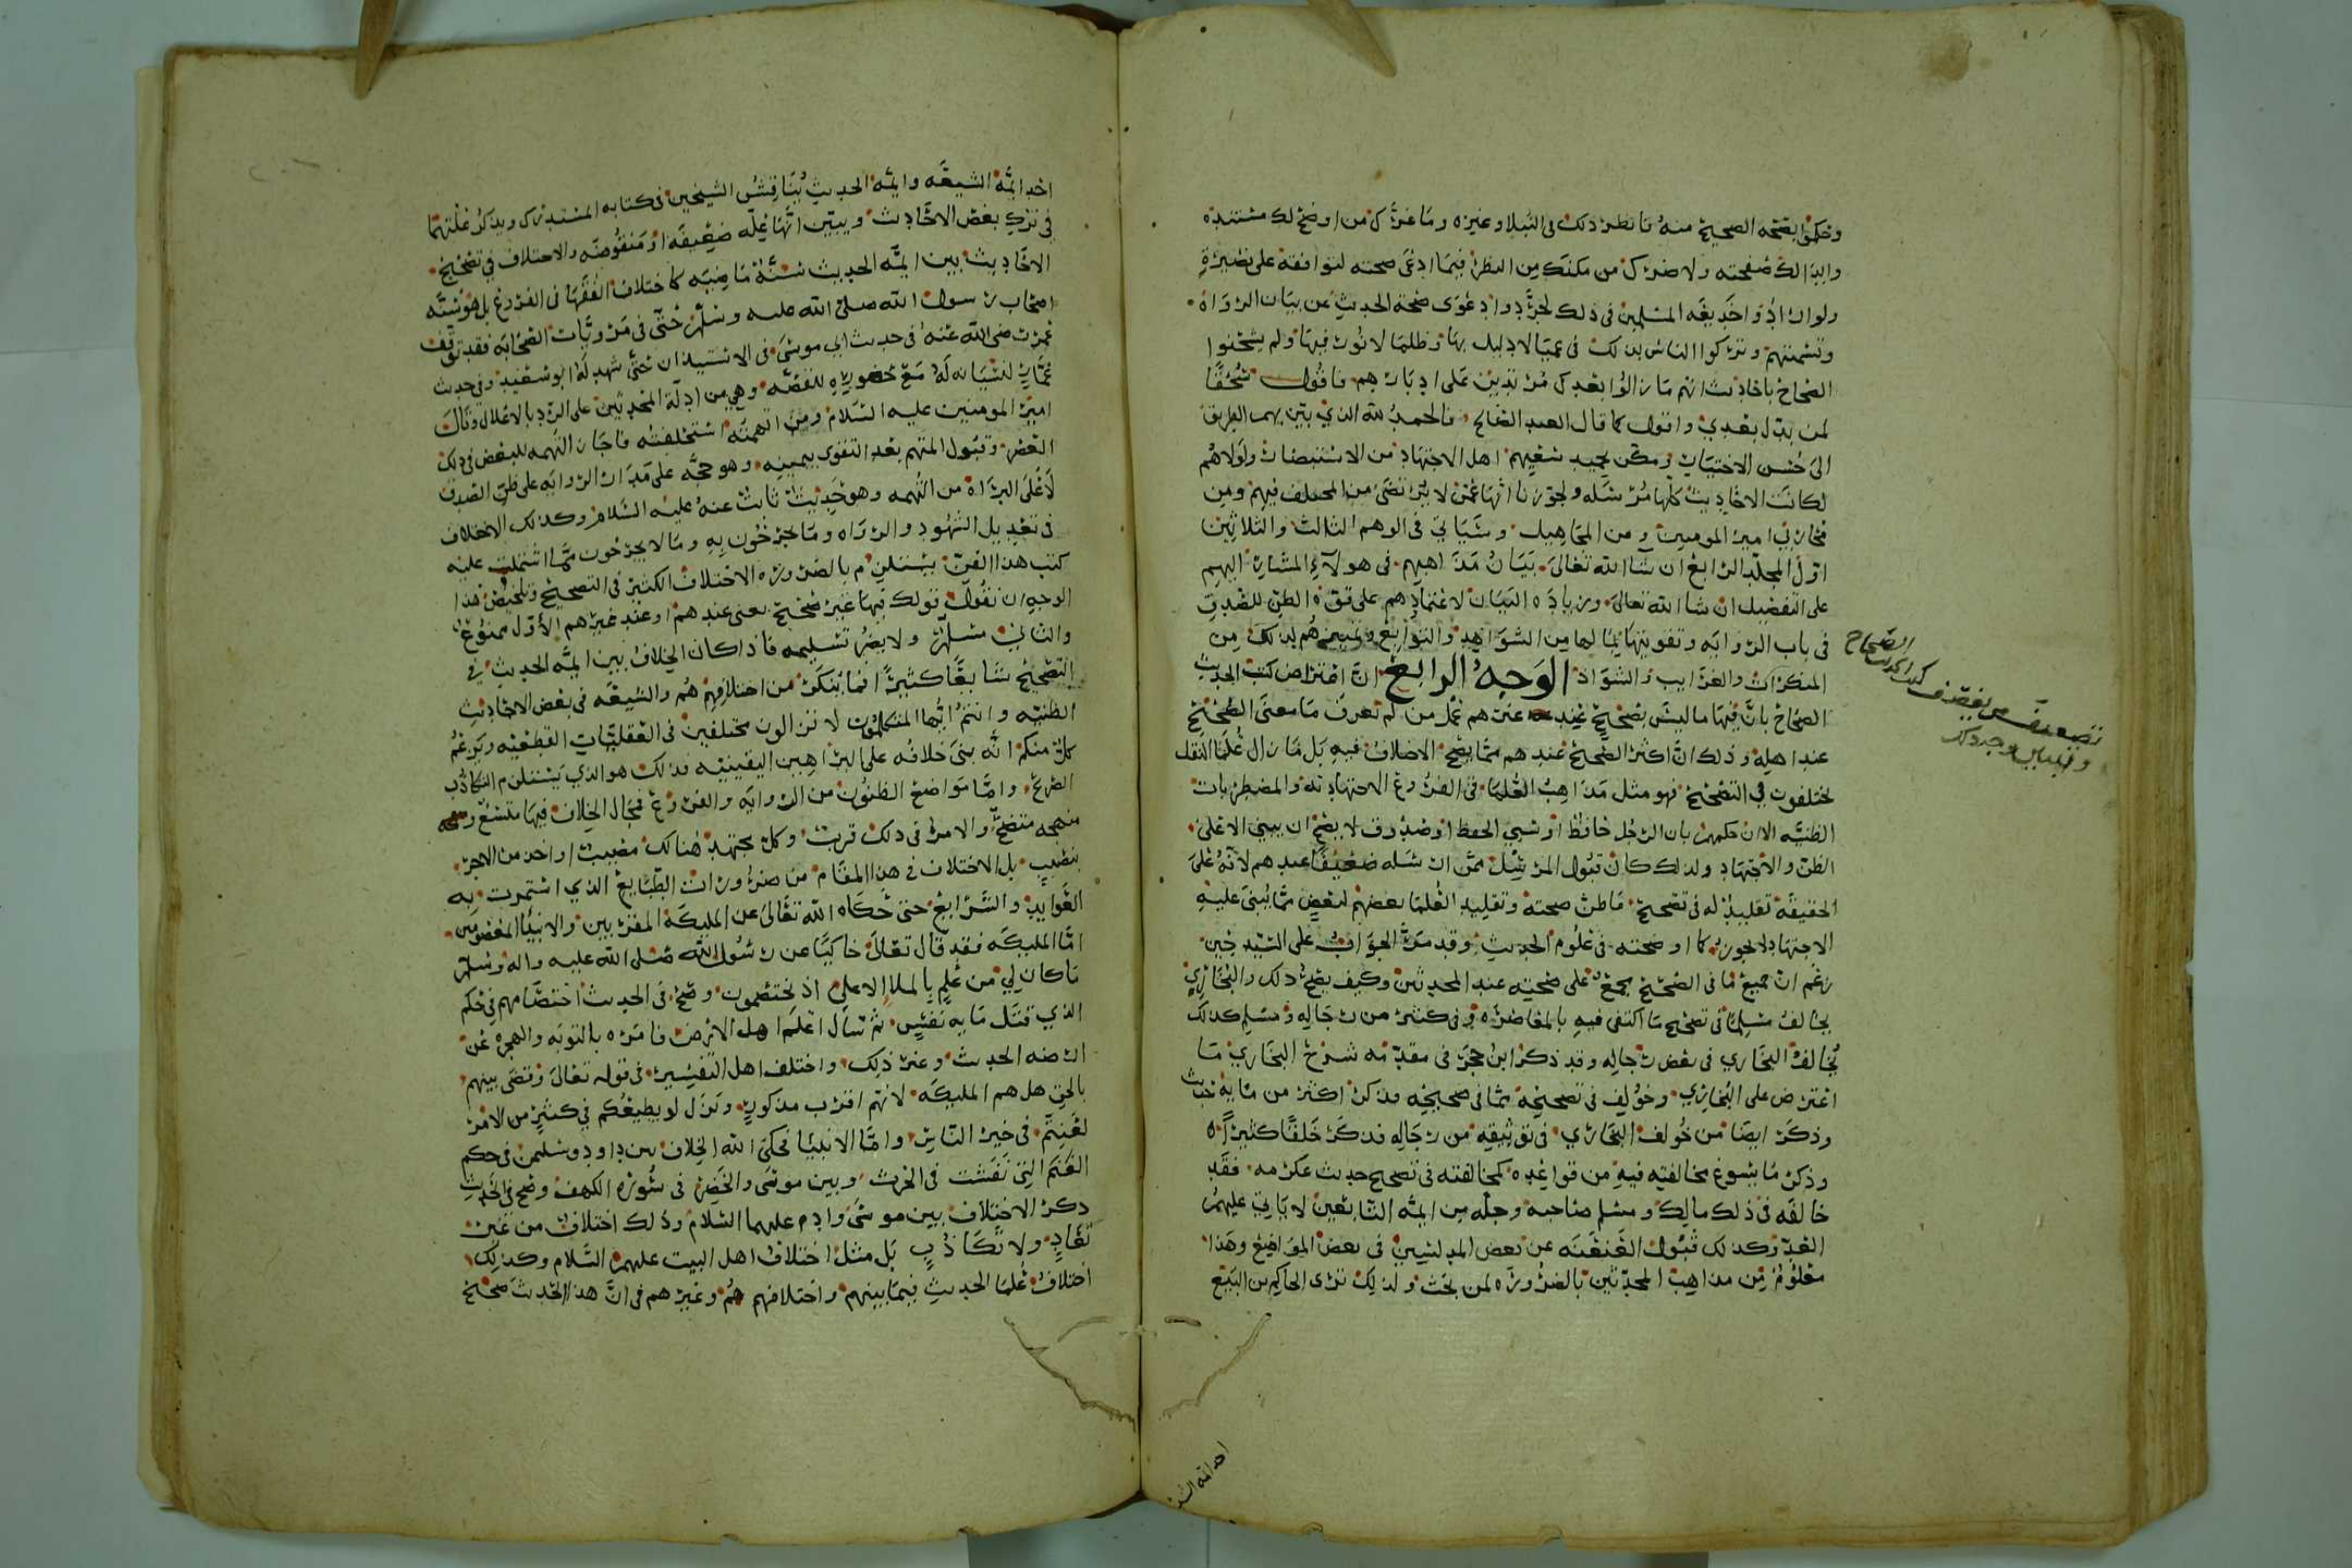 وحكموا بصحه الصحيح منه فانظر ذلك في النبلا وغيره وما غرك من اوضح لك مستنده
وابدا لك صفحته ولا ضرك من مكنك من النظر فيما ادعى صحته لتوافقه على بصيرة
ولو اراد واخديعه المسلمين في ذلك لجردوا دعوى صحة الحديث عن بيان الرواه
وتسميتهم وتركوا الناس بذلك في عميا لا دليل بها وظلما لا نور فيها ولم يشحنوا
الصحاح باحاديث انهم ما زالوا بعدك مرتدين على ادبارهم فاقول سحقا
لمن بدل بعدي واقول كما قال العبد الصالح فالحمد لله الذي بين بهم الطريق
الى حسن الاختيار ومكن بحميد سعيهم اهل الاجتهاد من الاستبصار ولولاهم
لكانت الاحاديث كلها مرسله ولجوزنا انها عمن لا يرتضى من المختلف فيهم ومن
محاربي امير المومنين ومن المجاهيل وسياتي في الوهم الثالث والثلاثين
اول المجلد الرابع ان شا الله تعالى بيان مذاهبهم في هولآء المشار اليهم
على التفصيل ان شا الله تعالى وزيادة البيان لاعتمادهم على قوة الظن للصدق
في باب الروايه وتقويتها بما لها من الشواهد والتوابع وتمييزهم لذلك من
المنكرات والغرايب والشواذ الوجه الرابع ان اعتراض كتب الحديث
الصحاح بان فيها ما ليس بصحيح عند غيرهم عمل من لم تعرف ما معنى الصحيح
عند اهله وذلك ان اكثر الصحيح عندهم مما يصح الاختلاف فيه بل ما زال علما النقل
يختلفون في التصحيح فهو مثل مذاهب العلما في الفروع الاجتهاديه والمضطربات
الظنيه لان حكمهم بان الرجل حافظ او سيي الحفظ او صدوق لا يصح ان يبنى الا على
الظن والاجتهاد ولذلك كان قبول المرسل ممن ارسله ضعيفا عندهم لانه على
الحقيقه تقليد له في تصحيح ما ظن صحته وتقليد العلما بعضهم لبعض مما يبنى عليه
الاجتهاد لا يجوز كما اوضحته في علوم الحديث وقد مر الجواب على السيد حين
زعم ان جميع ما في الصحيح مجمع على صحته عند المحدثين وكيف يصح ذلك والبخاري
يخالف مسلما في تصحيح ما اكتفى فيه بالمعاصره وفي كثير من رجاله ومسلم كذلك
يخالف البخاري في بعض رجاله وقد ذكر ابن حجر في مقدمه شرح البخاري ما
اعترض على البخاري وخولف في تصحيحه مما في صحيحه فذكر اكثر من مايه حديث
وذكر ايضا من خولف البخاري في توثيقه من رجاله فذكر خلقا كثيرا
وذكر ما يسوغ مخالفته فيه من قواعده كمخالفته في تصحيح حديث عكرمه فقد
خالفه في ذلك مالك ومسلم صاحبه وجله من ايمه التابعين لا ياتي عليهم
العد وكذلك قبول العنعنه عن بعض المدلسين في بعض المواضع وهذا
معلوم من مذاهب المحدثين بالضروره لمن بحث ولذلك ترى الحاكم بن البيع
الصحاح
احد ائمه الش
احد ايمة الشيعه وايمه الحديث يناقش الشيخين في كتابه المستدرك ويذكر علتهما
في ترك بعض الاحاديث ويبين انها عله ضعيفه او منقوضه والاختلاف في تصحيح
الاحاديث بين ايمه الحديث سنة ماضيه كاختلاف الفقها في الفروع بل هو سنه
اصحاب رسول الله صلى الله عليه وسلم حتى في مرويات الصحابه فقد توقف
عمر رضي الله عنه في حديث ابي موسى في الاستيذان حتى شهد له ابو سعيد وفي حديث
عمار لنسيانه له مع حضوره للقصه وهي من ادلة المحدثين على الرد بالاعلال وقال
امير المومنين عليه السلام ومن اتهمته استحلفته فاجاز التهمه للبعض في ذلك
العصر وقبول المتهم بعد التقوى بيمينه وهو حجه على مدار الروايه على ظن الصدق
لا على البراة من التهمه وهو حديث ثابت عنه عليه السلام وكذلك الاختلاف
في تعديل الشهود والرواه وما يجرحون به وما لا يجرحون مما اشتملت عليه
كتب هذا الفن يستلزم بالضروره الاختلاف الكثير في التصحيح وتلخيص هذا
الوجه ان نقول قولك فيها غير صحيح يعني عندهم او عند غيرهم الأول ممنوع
والثاني مسلم ولا يضر تسليمه فاذا كان الخلاف بين ايمه الحديث في
التصحيح شايعا كثيرا فما ينكر من اختلافهم هم والشيعه في بعض الاحاديث
الظنيه وانتم ايها المتكلمون لا تزالون مختلفين في العقليات القطعيه ويزعم
كل منكم انه بنى خلافه على البراهين اليقينيه فذلك هو الذي يستلزم التكاذب
الصريح واما مواضع الظنون من الروايه والفروع فمجال الخلاف فيها متسع
منهجه متضح والامر في ذلك قريب وكل مجتهد هنالك مصيب او اخذ من الاجر
بنصيب بل الاختلاف في هذا المقام من ضرورات الطبايع الذي استمرت به
العوايد والشرايع حتى حكاه الله تعالى عن المليكه المقربين والانبيا المعصومين
اما المليكه فقد قال تعالى حاكيا عن رسول الله صلى الله عليه واله وسلم
ما كان لي من علم بالملا الاعلى اذ يختصمون وصح في الحديث اختصامهم في حكم
الذي قتل مايه نفس ثم سال اعلم اهل الارض فامره بالتوبه والهجره عن
ارضه الحديث وغير ذلك واختلف اهل التفسير في قوله تعالى وقضى بينهم
بالحق هل هم المليكه لانهم اقرب مذكور ونزل لو يطيعكم في كثير من الامر
لعنتم في خير الناس واما الانبيا فحكى الله الخلاف بين داود وسليمن في حكم
الغنم التي نفشت في الحرث وبين موسى والخضر في سوره الكهف وصح في الحديث
ذكر الاختلاف بين موسى وادم عليهما السلام وذلك اختلاف من غير
تعاد ولا تكاذب بل مثل اختلاف اهل البيت عليهم السلام وكذلك
اختلاف علما الحديث فيما بينهم واختلافهم هم وغيرهم في ان هذا الحديث صحيح